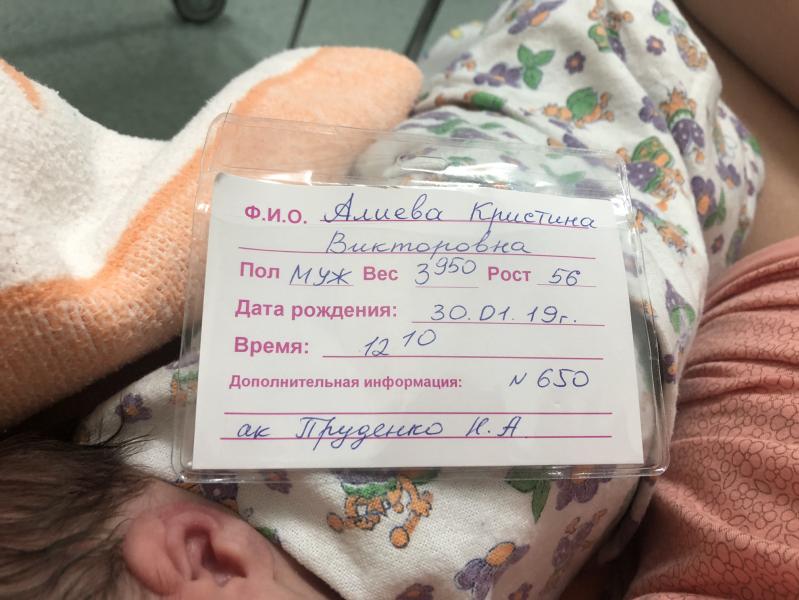 Ф.И.О. Алиева Кристина
Викторовна
Пол муж Вес 3950 Рост 56
Дата рождения: 30.01.19г.
Время: 12 10
Дополнительная информация: N 650
ак Пруденко Н.А.